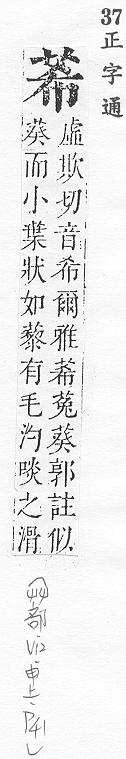 37
正字通
莃
虛欺切音希爾雅莃菟葵郭註似
葵而小葉狀如藜有毛汋啖之滑